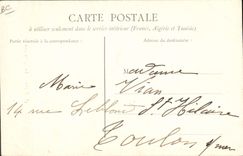 BC
CARTE POSTALE
à utiliser seulement dans le service intérieur (France, Algérie et Tunisie).
Partie réservée à la correspondance.
Adresse du destinataire.
Madame
Marie Vian
14 rue Leblond St Hilaire
Toulon s/mer